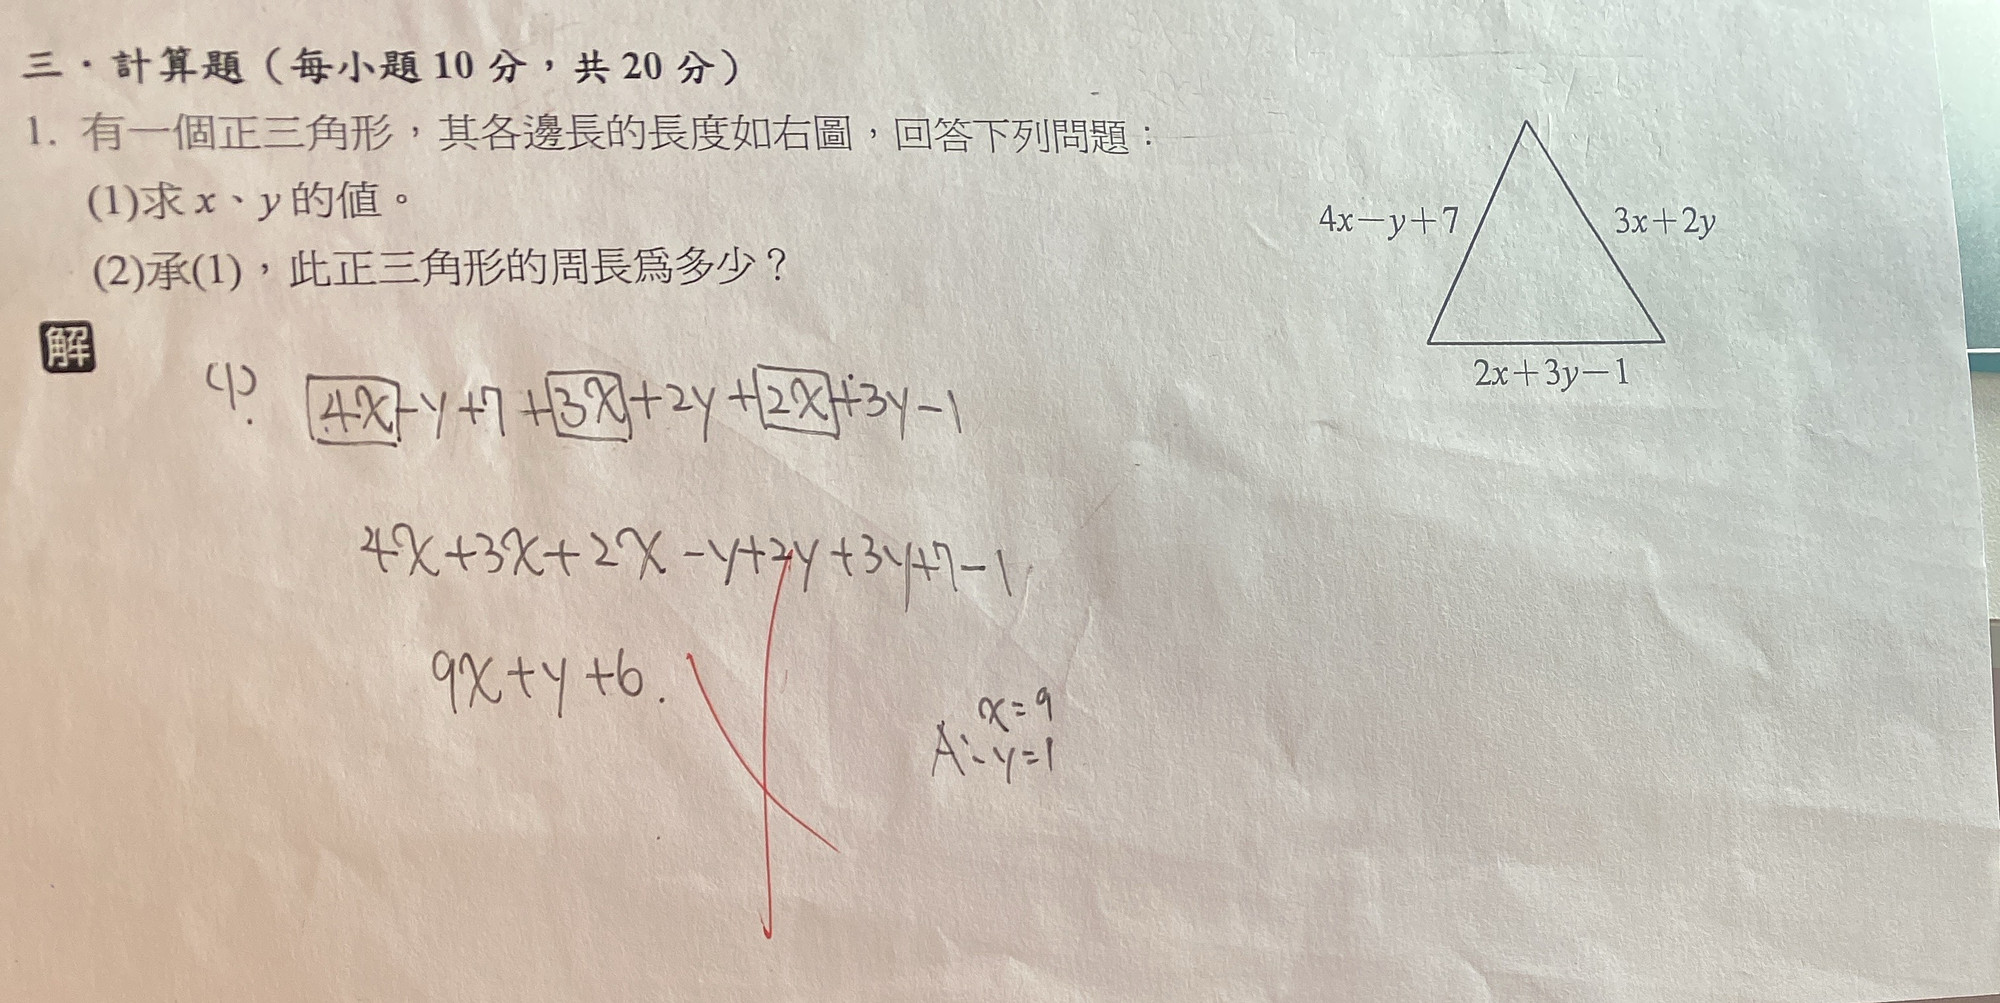 三‧計算題（每小題 10 分，共 20 分）
1. 有一個正三角形，其各邊長的長度如右圖，回答下列問題：
(1)求 x、y 的值。
(2)承(1)，此正三角形的周長為多少？
4x－y＋7
3x＋2y
2x＋3y－1
解
(1). 4x-y+7+3x+2y+2x+3y-1
4x+3x+2x-y+2y+3y+7-1
9x+y+6.
x=9
A: y=1